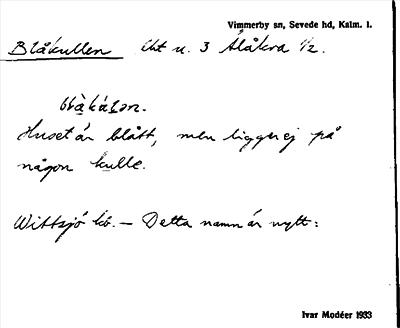 Vimmerby sn, Sevede hd, Kalm. l.
Blåkullen lht u. 3 Ålåkra 1/2.
Huset är blått, men ligger ej på
någon kulle.
Wittsjö kb. — Detta namn är nytt:
Ivar Modéer 1933